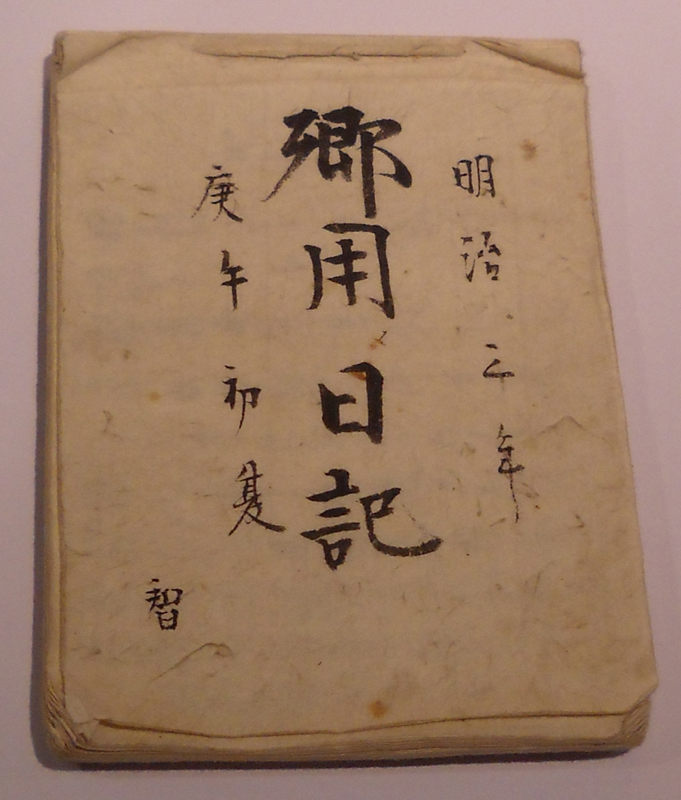 明治三年
郷用日記
庚午初夏
智